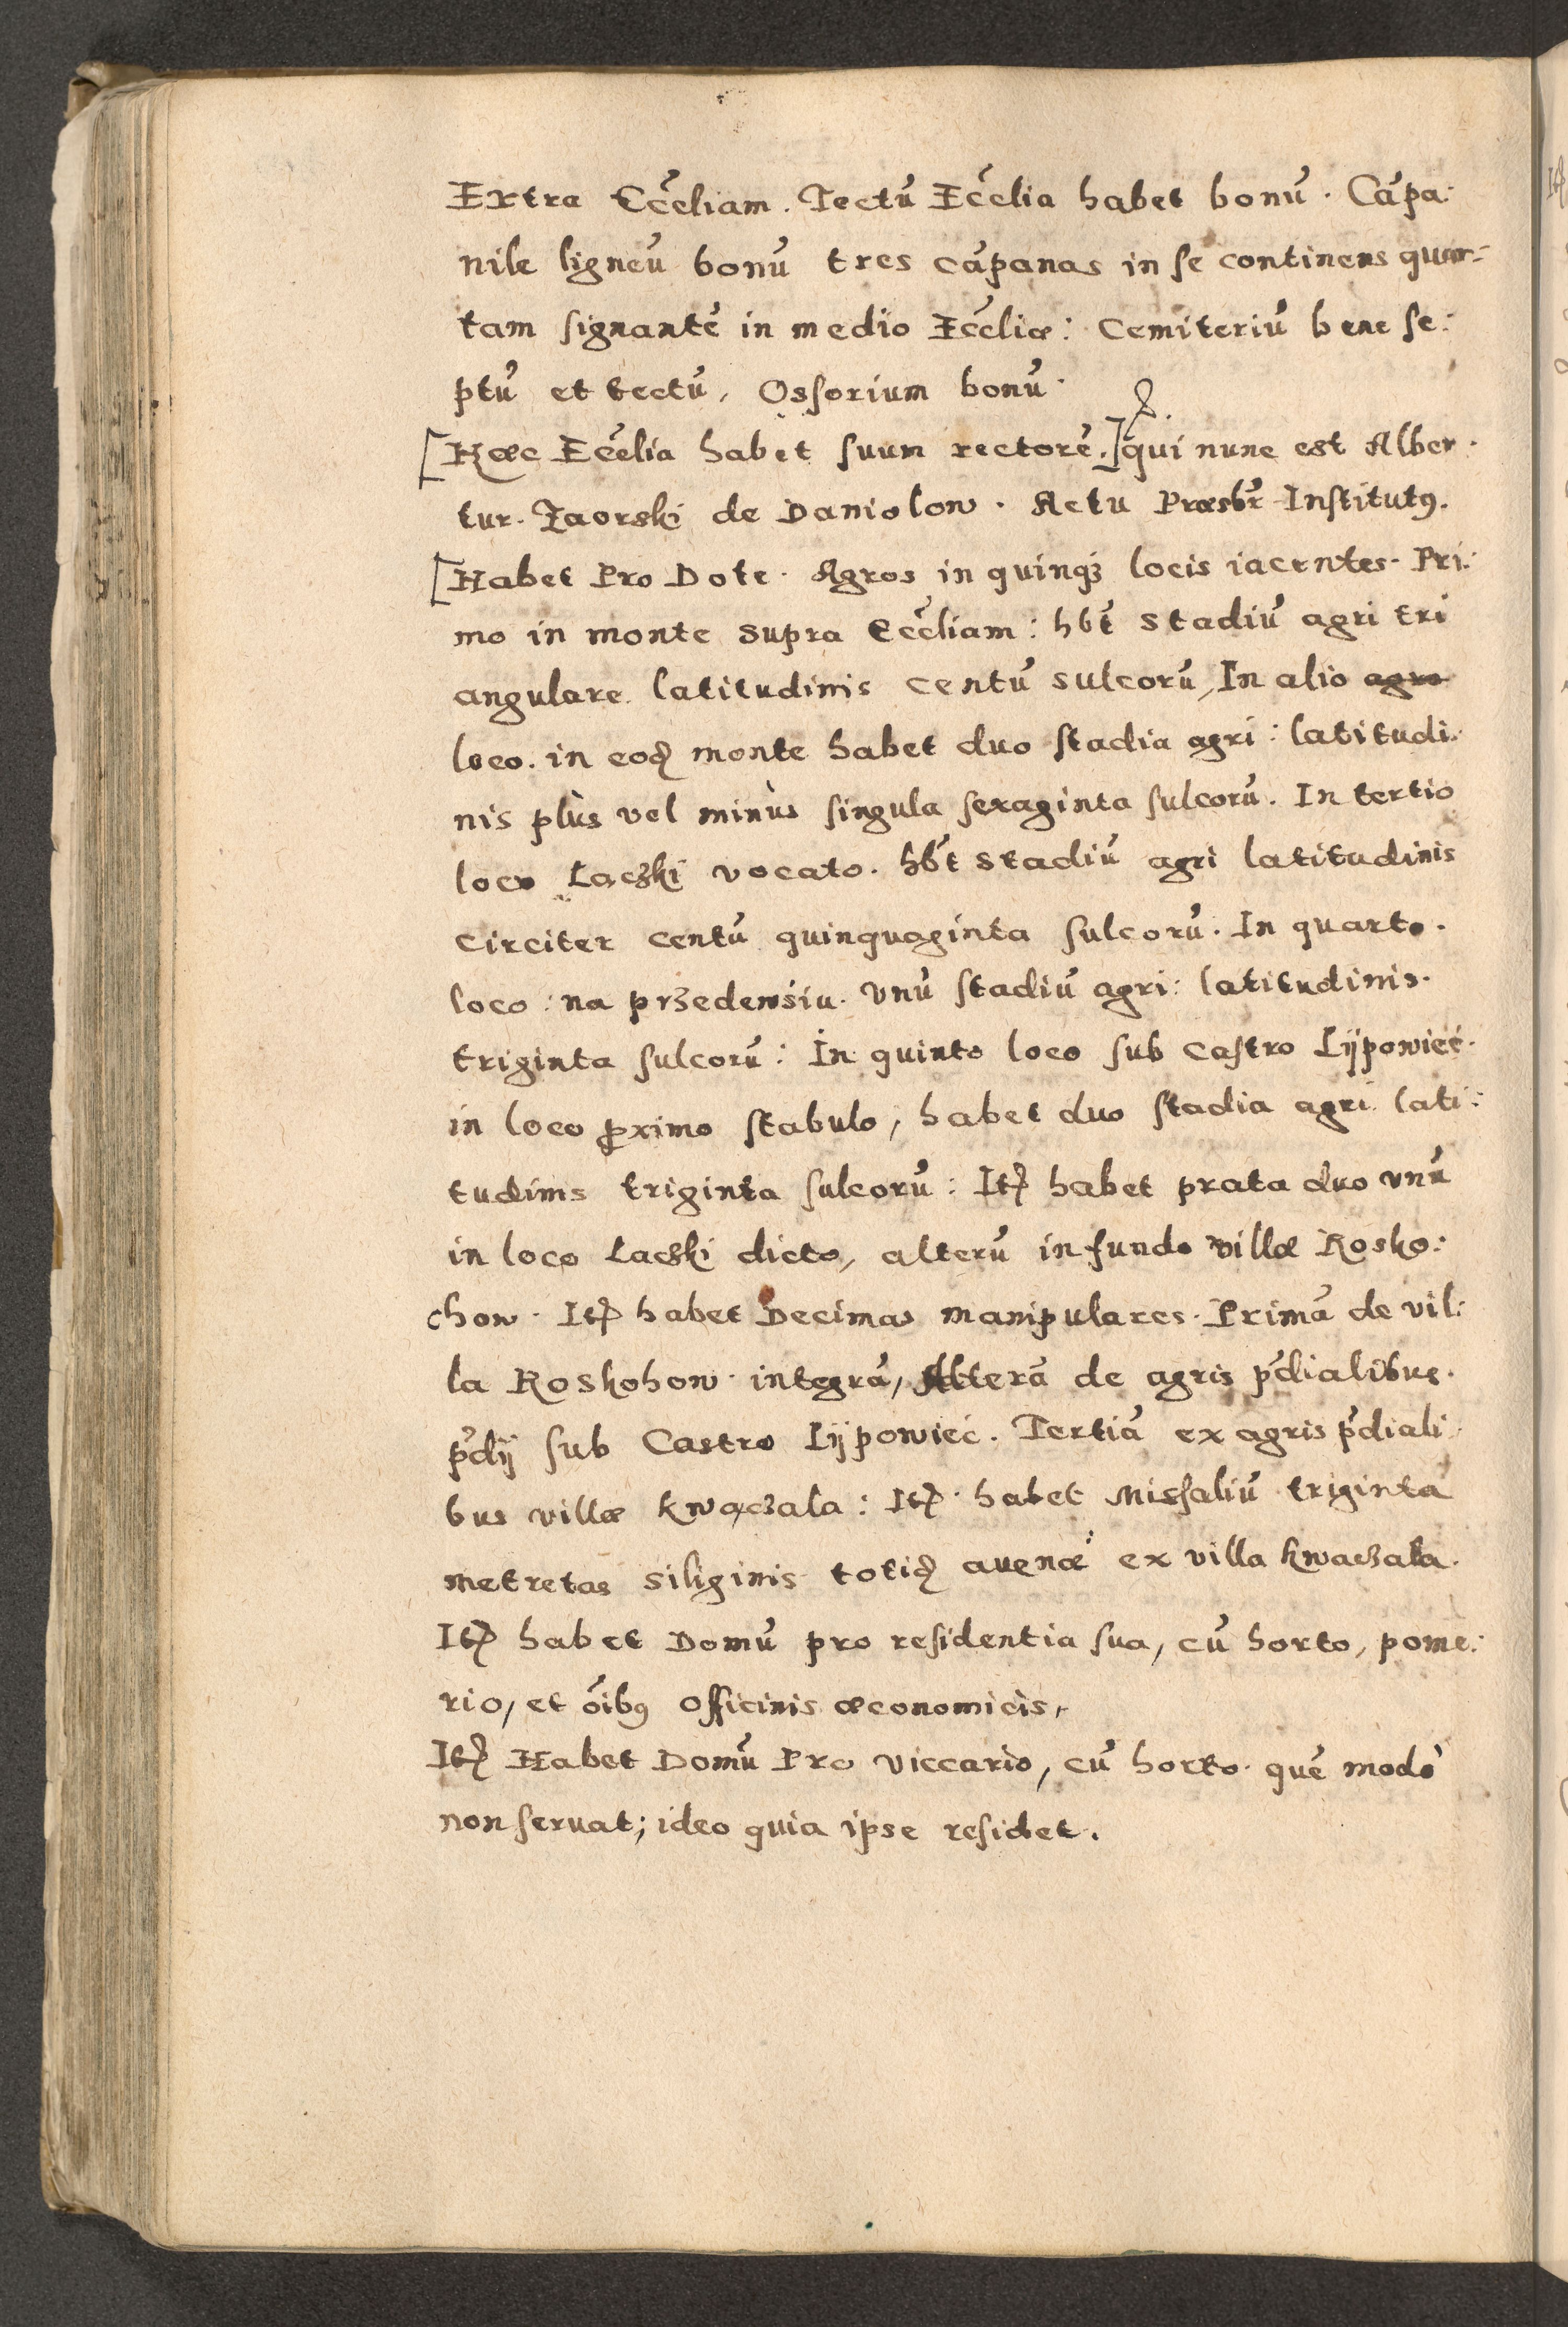 Extra Ecc̃liam. Tectũ Ecc̃lia habet bonũ. Cãpa:
nile ligneũ bonũ tres cãpanas in se continens quar-
tam signantẽ in medio Ecc̃liæ: Cemiteriũ bene se:
ptũ et tectũ, Ossorium bonũ.
[Hæc Ecc̃lia habet suum rectorẽ.] qui nunc est Alber.
tur. Zaorski de Daniolow. Actu Præsbr̃ Institutꝰ.
[Habet Pro Dote. Agros in quinqꝫ locis iacentes. Pri:
mo in monte supra Ecc̃liam: hb̃t stadiũ agri tri
angulare latitudinis centũ sulcorũ, In alio agro
loco. in eod̨ monte habet duo stadia agri: latitudi.
nis plùs vel minùs singula sexaginta sulcorũ. In tertio
loco Łaczki vocato. hb̃t stadiũ agri latitudinis
circiter centũ quinquaginta sulcorũ. In quarto.
loco: na przedewsiu. vnũ stadiũ agri: latitudinis.
triginta sulcorũ: In quinto loco sub castro Lijpowieć.
in loco ꝓximo stabulo, habet duo stadia agri lati:
tudinis triginta sulcorũ: Itꝫ habet prata duo vnũ
in loco Łaczki dicto, alterũ in fundo villæ Rosko:
chow. Itꝫ habet Decimas manipulares. Primã de vil:
la Roskohow. integrã, Alterã de agris p̃dialibus.
p̃dij sub Castro Lijpowieć. Tertiã ex agris p̃diali
bus villæ kwaczala: Itꝫ. habet Missaliũ triginta
metretas siliginis totid̨ auenæ ex villa kwaczała.
Itꝫ habet Domũ pro residentia sua, cũ horto, pome:
rio, et õibꝰ officinis œconomicis,
Itꝫ Habet Domũ Pro viccario, cũ horto. quẽ modò
non seruat; ideo quia ipse residet.